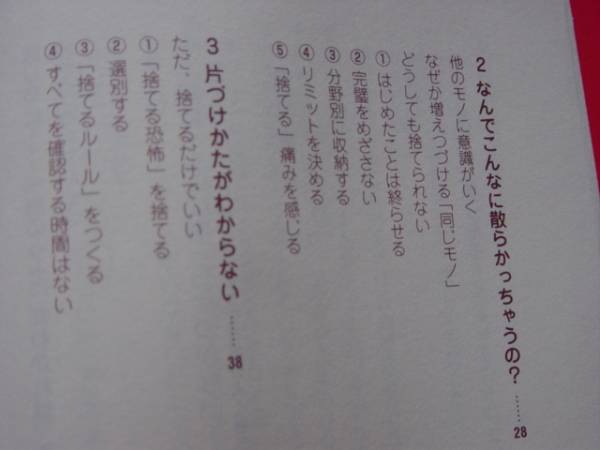 2 なんでこんなに散らかっちゃうの? …… 28
他のモノに意識がいく
なぜか増えつづける「同じモノ」
どうしても捨てられない
① はじめたことは終らせる
② 完璧をめざさない
③ 分野別に収納する
④ リミットを決める
⑤ 「捨てる」痛みを感じる
3 片づけかたがわからない …… 38
ただ、捨てるだけでいい
① 「捨てる恐怖」を捨てる
② 選別する
③ 「捨てるルール」をつくる
④ すべてを確認する時間はない